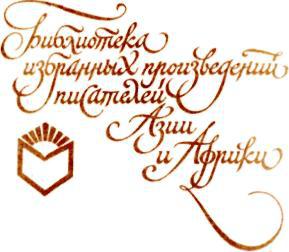 Библиотека
избранных произведений
писателей
Азии
и Африки